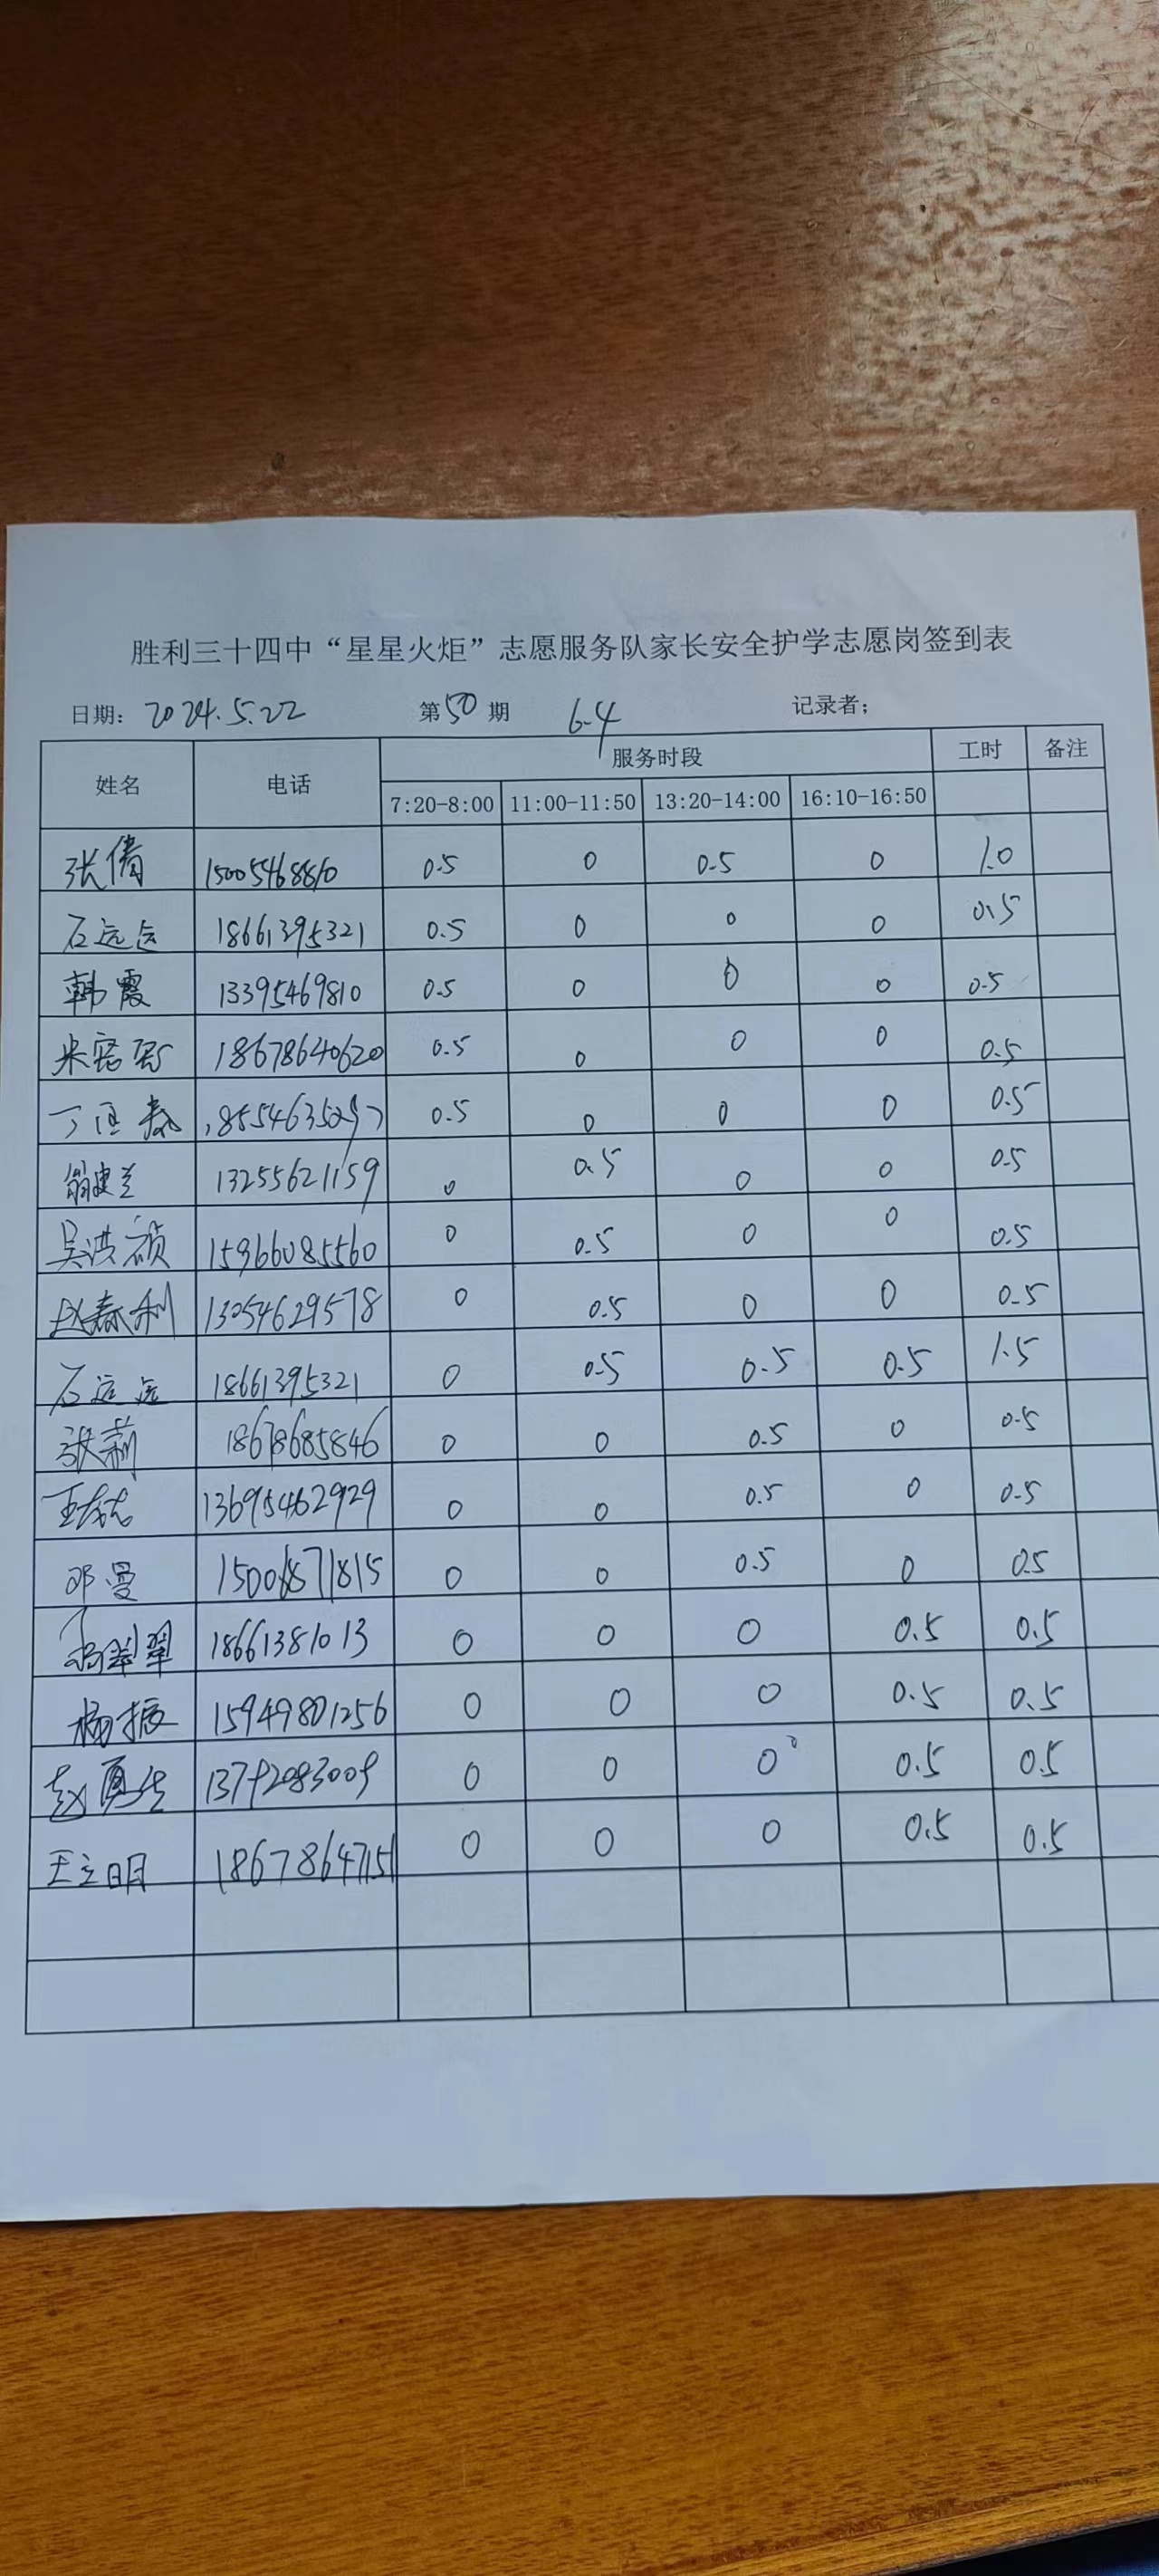 胜利三十四中“星星火炬”志愿服务队家长安全护学志愿岗签到表
日期: 2024.5.22 第50期 6.4 记录者;
姓名 电话 服务时段 工时 备注
7:20-8:00 11:00-11:50 13:20-14:00 16:10-16:50
张倩 15005468810 0.5 0 0.5 0 1.0
石远远 18661395321 0.5 0 0 0 0.5
韩霞 13395469810 0.5 0 0 0 0.5
18678640620 0.5 0 0 0 0.5
0.5 0 0 0 0.5
13255621159 0 0.5 0 0 0.5
吴洪祯 15966085560 0 0.5 0 0 0.5
赵春利 13054629578 0 0.5 0 0 0.5
石远远 18661395321 0 0.5 0.5 0.5 1.5
张莉 18678685846 0 0 0.5 0 0.5
13695462929 0 0 0.5 0 0.5
邓曼 0 0 0.5 0 0.5
杨翠翠 18661381013 0 0 0 0.5 0.5
杨振 15949801256 0 0 0 0.5 0.5
13792083009 0 0 0 0.5 0.5
王立明 18678647151 0 0 0 0.5 0.5